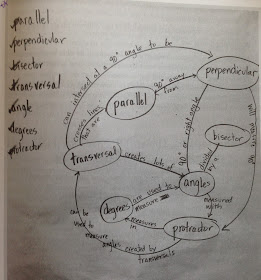 parallel
perpendicular
bisector
transversal
angle
degrees
protractor
can intersect at a 90° angle to be
perpendicular
crosses lines
that are
parallel
90° away
from
bisector
transversal
creates lots of
90° or right angle
divided
by a
angles
degrees
are used to
measure
measured
with
measures
in
protractor
can be
used to
measure
angles created by
transversals